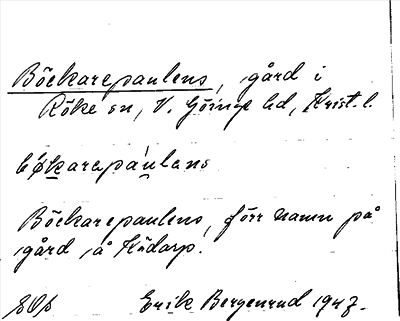 Böckarepaulens, gård i
Röke sn, V. Göinge hd, Krist. l.
bøkarepaulans
Böckarepaulens, förr namn på
gård på Kädarp.
Erik Bergenrud 1947.